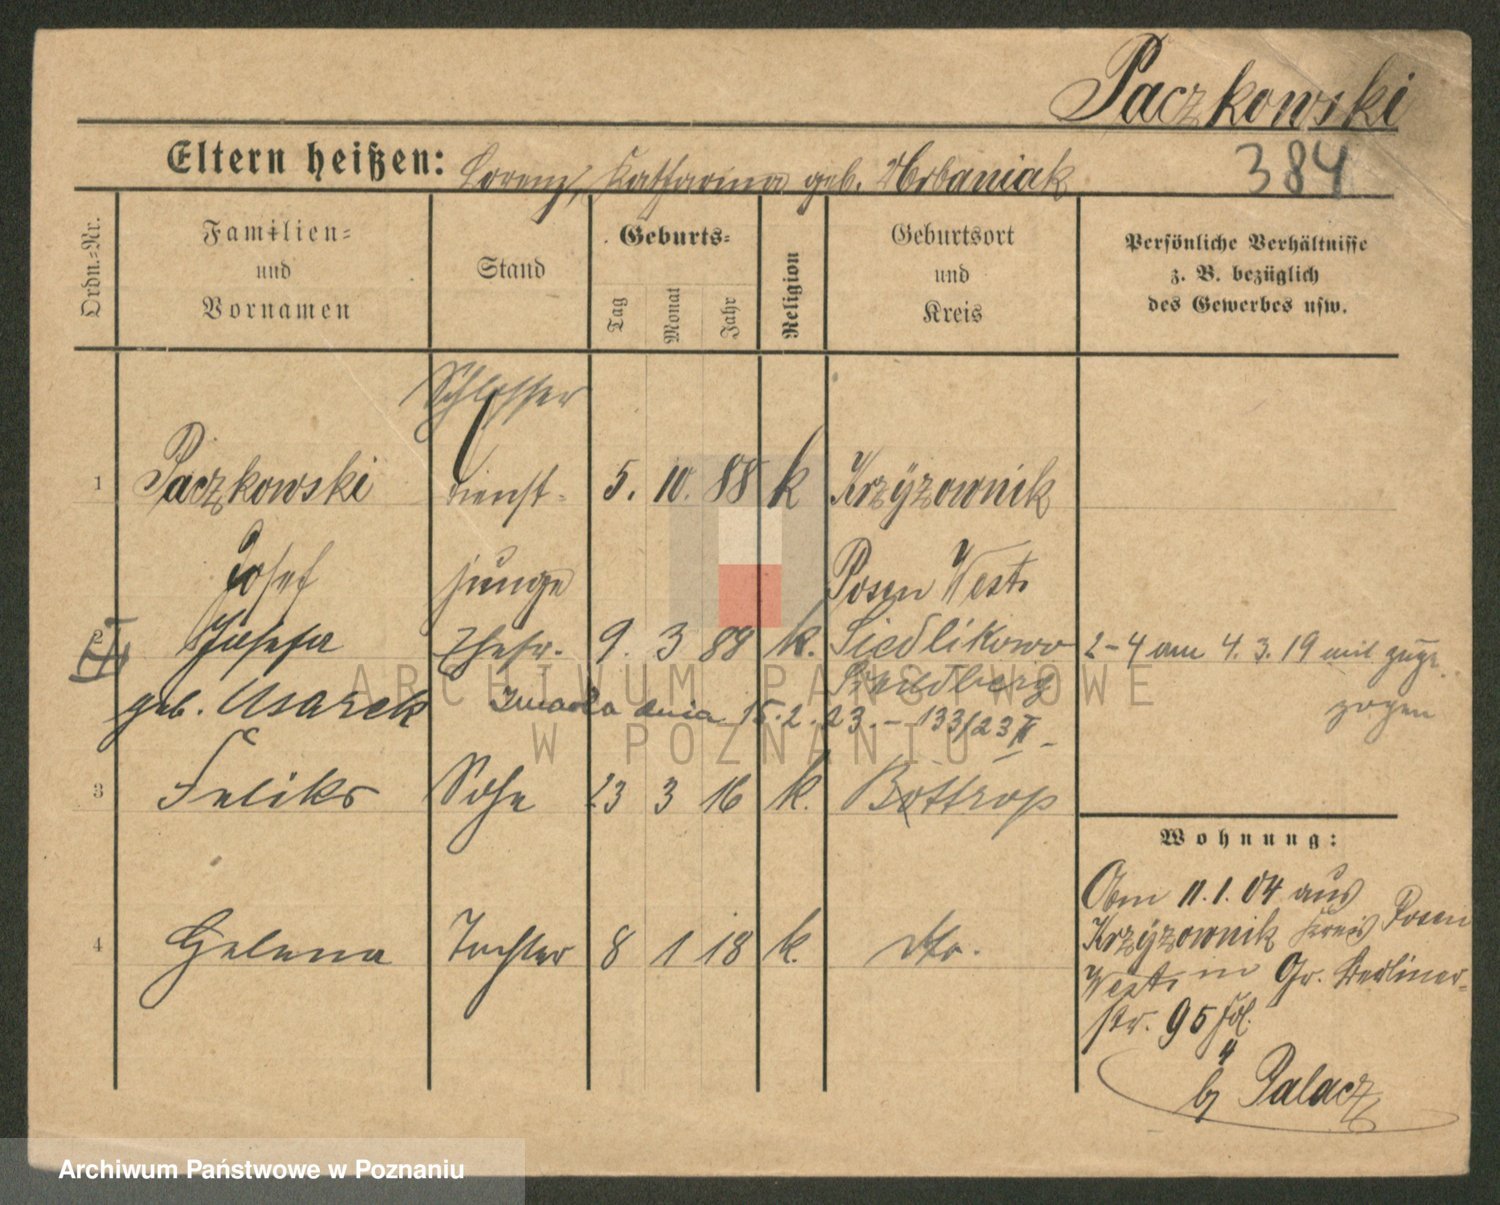 Paczkowski
384
Eltern heißen: Lorenz, Katharina geb. Urbaniak
Ordn.-Nr.
Familien- und Vornamen
Stand
Geburts-
Tag
Monat
Jahr
Religion
Geburtsort und Kreis
Persönliche Verhältnisse z. B. bezüglich des Gewerbes usw.
Schlosser
1 Paczkowski Dienst- 5. 10. 88 k Krzÿzownik
Josef junge Posen West.
2 Josefa Ehefr. 9. 3 88 k. Siedlikowo 2-4 am 4. 3. 19 mit zugezogen
geb. Schildberg
Zmarła dnia 15.2.23. – 133/23 II –
3 Feliks Sohn 23 3 16 k. Bottrop
4 Helena Tochter 8 1 18 k. dto.
Wohnung:
Vom 11. 1. 04 aus
Krzÿzownik Kreis Posen
West. in Gr. Berliner-
str. 95
b/ Palacz
ARCHIWUM PAŃSTWOWE
W POZNANIU
Archiwum Państwowe w Poznaniu